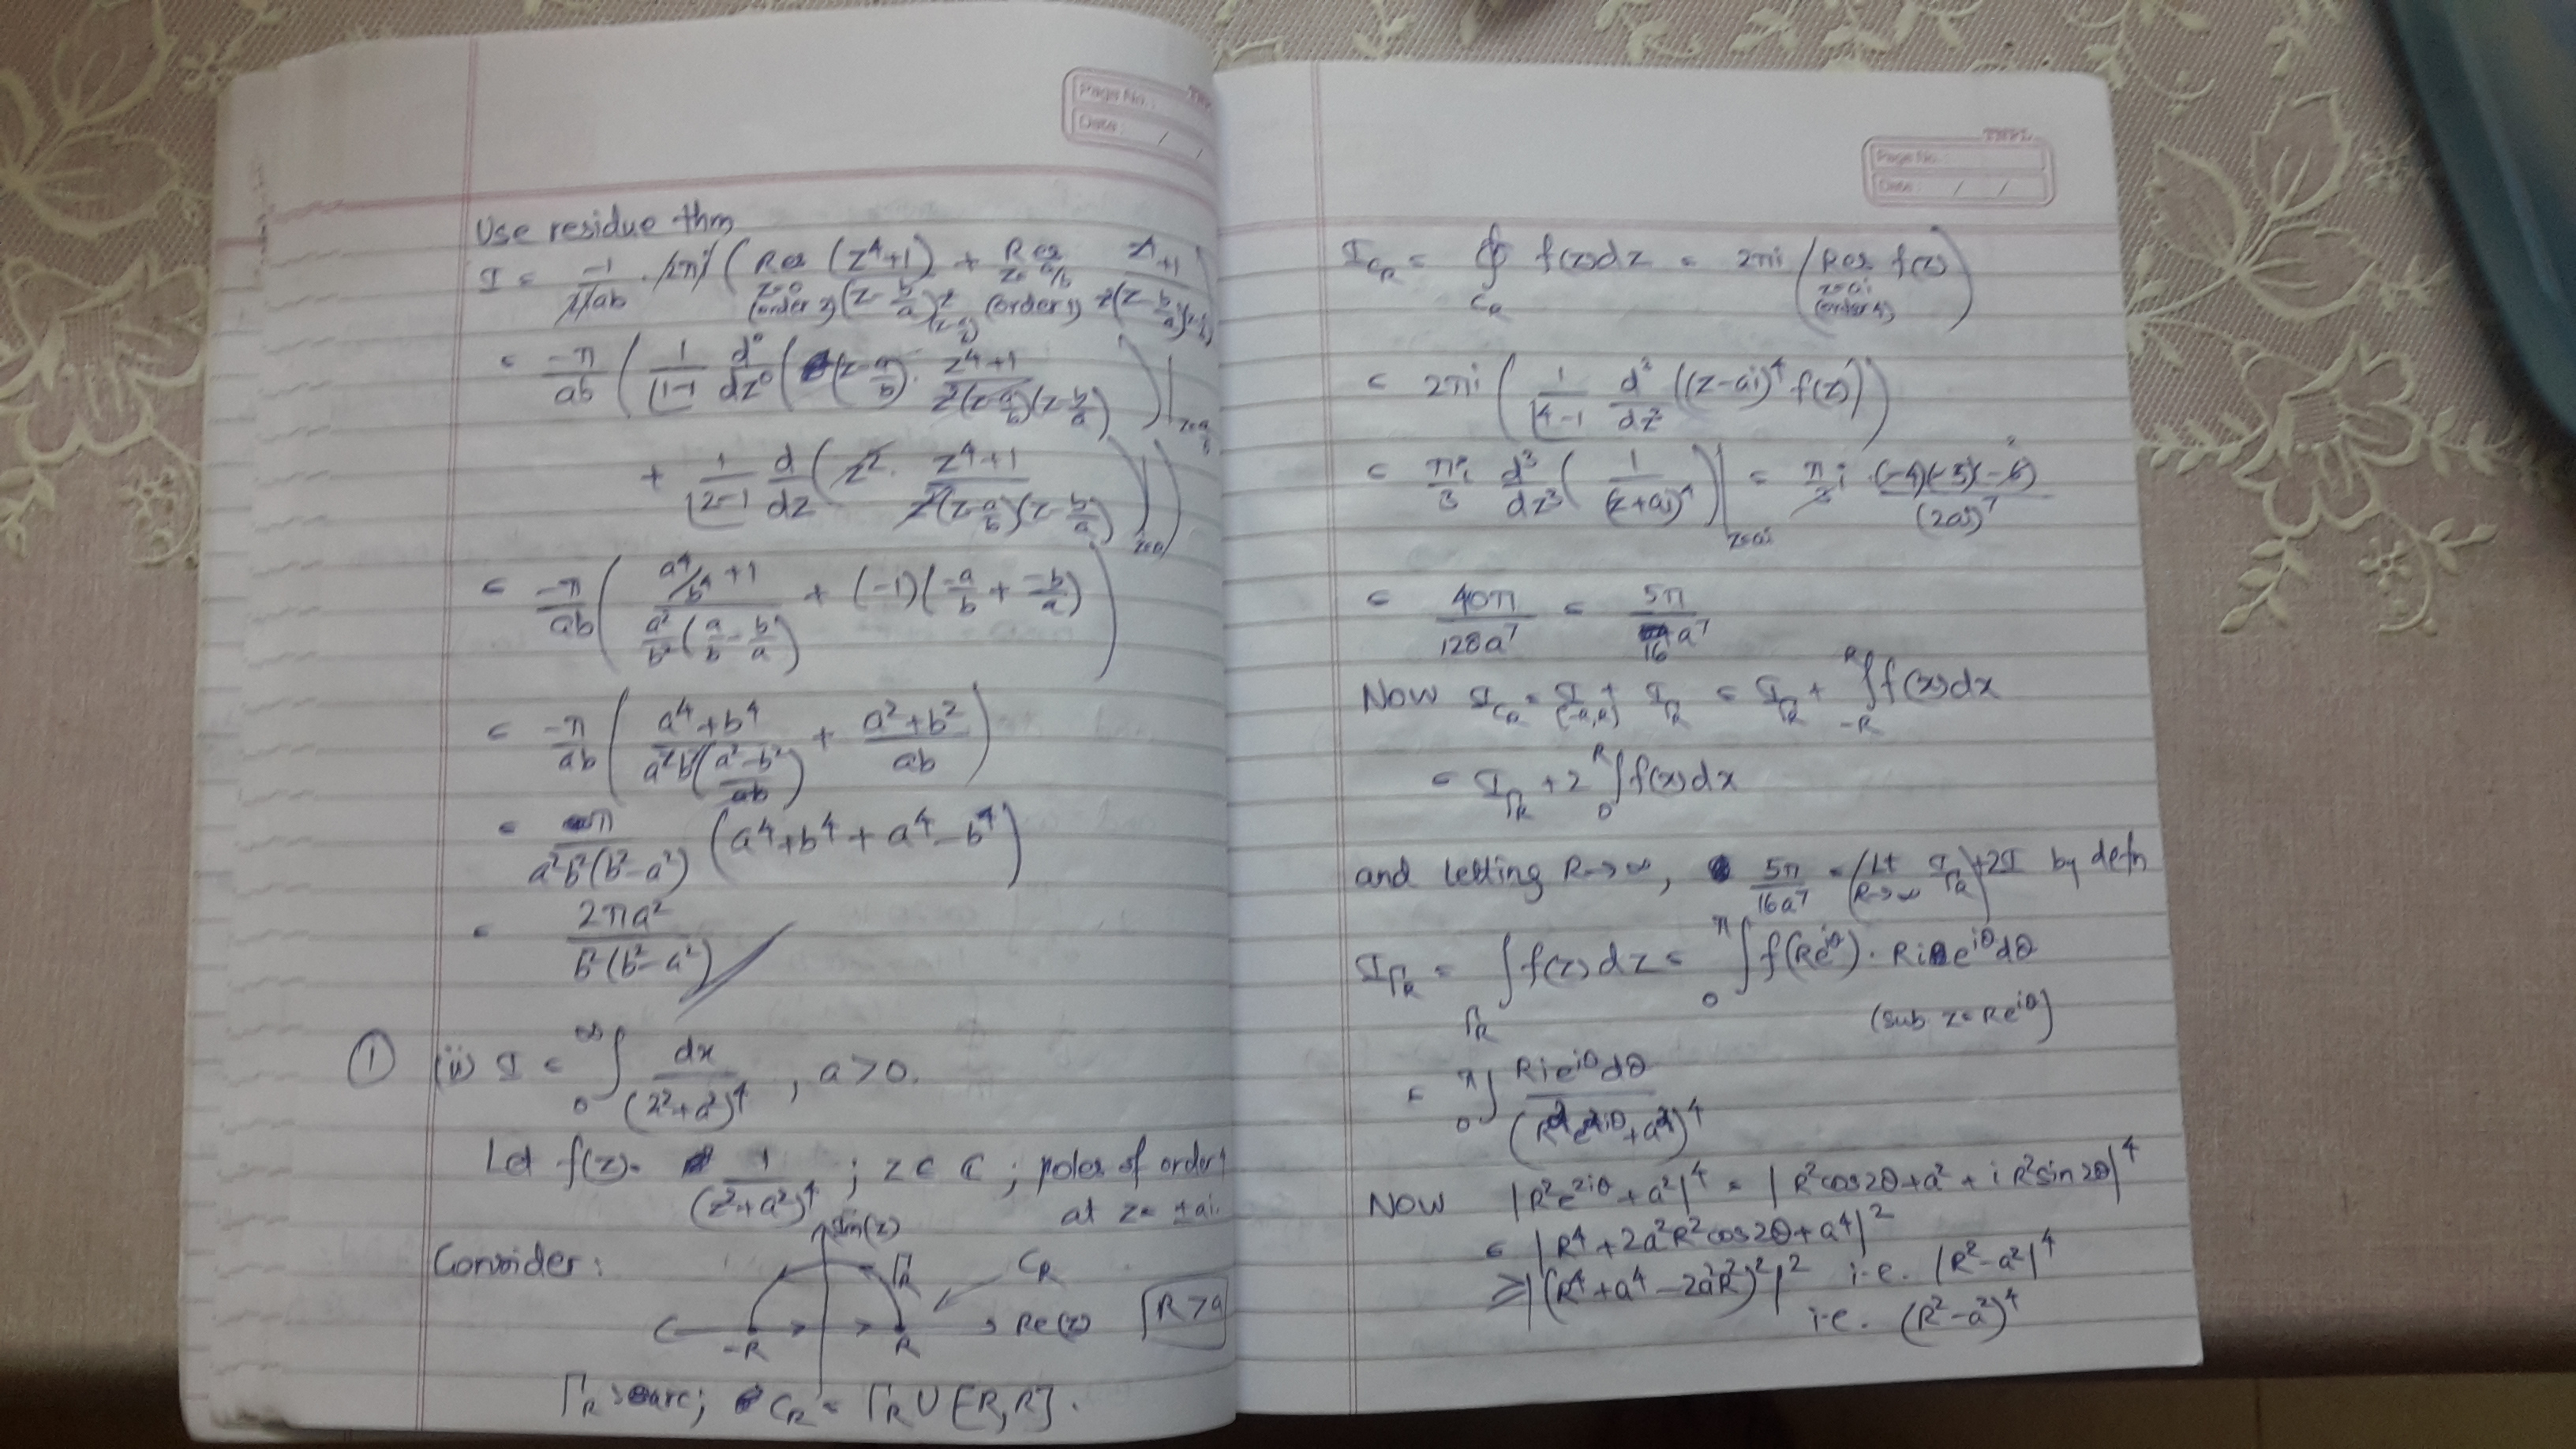 Page No.:
Date: / /
Use residue thm
I = -1/2iab · 2πi ( Res z=0 (order 2) (z⁴+1)/(z-b/a)z²(z-a/b) + Res z=a/b (order 1) z⁴+1/z²(z-b/a)(z-a/b) )
= -π/ab ( 1/⌊1-1 d⁰/dz⁰ ( (z-a/b) · z⁴+1/z²(z-a/b)(z-b/a) ) |z=a/b
+ 1/⌊2-1 d/dz ( z² · z⁴+1/z²(z-a/b)(z-b/a) ) )z=0
= -π/ab ( a⁴/b⁴+1 / a²/b²(a/b - b/a) + (-1)(-a/b + -b/a) )
= -π/ab ( a⁴+b⁴ / a²b²(a²-b²/ab) + a²+b²/ab )
= π/a²b²(b²-a²) (a⁴+b⁴+a⁴-b⁴)
= 2πa²/b²(b²-a²)
① (ii) I = ∞∫0 dx/(x²+a²)⁴ , a>0.
Let f(z) = 1/(z²+a²)⁴ ; z∈ℂ ; poles of order 4
at z = ±ai.
Consider:
Im(z)
ΓR
CR
-R
R
Re(z)
R>a
ΓR is arc; CR = ΓR ∪ [-R,R].
TMPL
Page No.:
Date: / /
I_CR = ∮CR f(z)dz = 2πi ( Res z=ai (order 4) f(z) )
= 2πi ( 1/⌊4-1 d³/dz³ ((z-ai)⁴ f(z)) )
= πi/3 d³/dz³ ( 1/(z+ai)⁴ ) |z=ai = π/3 i (-4)(-5)(-6)/(2ai)⁷
= 40π/128a⁷ = 5π/16a⁷
Now I_CR = I(-R,R) + IΓR = IΓR + R∫-R f(x)dx
= IΓR + 2 R∫0 f(x)dx
and letting R→∞, 5π/16a⁷ = (Lt R→∞ IΓR)+2I by defn
IΓR = ∫ΓR f(z)dz = π∫0 f(Re^iθ) · Rie^iθ dθ
(sub z=Re^iθ)
= π∫0 Rie^iθ dθ/(R²e^2iθ+a²)⁴
Now |R²e^2iθ+a²|⁴ = |R²cos2θ+a²+iR²sin2θ|⁴
= |R⁴+2a²R²cos2θ+a⁴|²
≥ |(R⁴+a⁴-2a²R²)²|² i.e. |R²-a²|⁴
i.e. (R²-a²)⁴